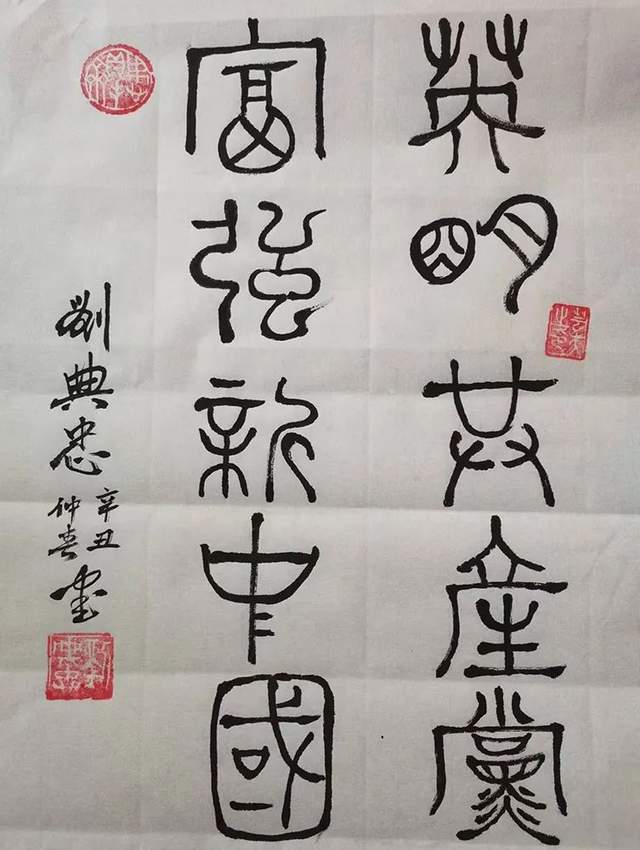 英明共産黨
富強新中國
劉典忠
辛丑
仲春書